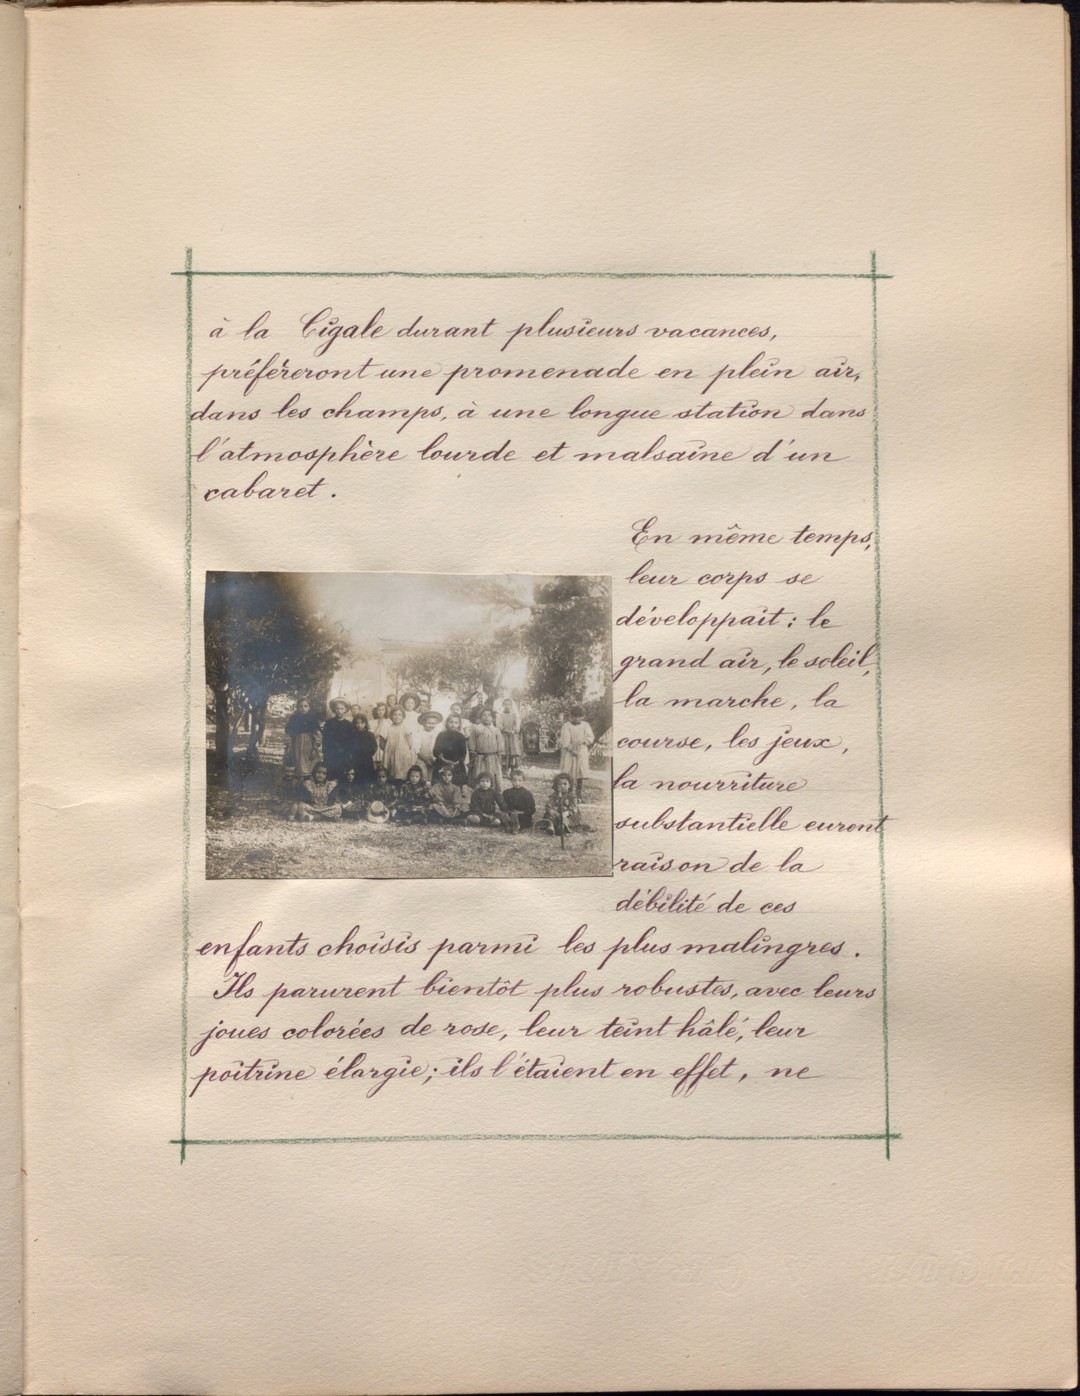 à la Cigale durant plusieurs vacances,
préfèreront une promenade en plein air,
dans les champs, à une longue station dans
l'atmosphère lourde et malsaine d'un
cabaret.
En même temps,
leur corps se
développait : le
grand air, le soleil,
la marche, la
course, les jeux,
la nourriture
substantielle eurent
raison de la
débilité de ces
enfants choisis parmi les plus malingres.
Ils parurent bientôt plus robustes, avec leurs
joues colorées de rose, leur teint hâlé, leur
poitrine élargie ; ils l'étaient en effet, ne